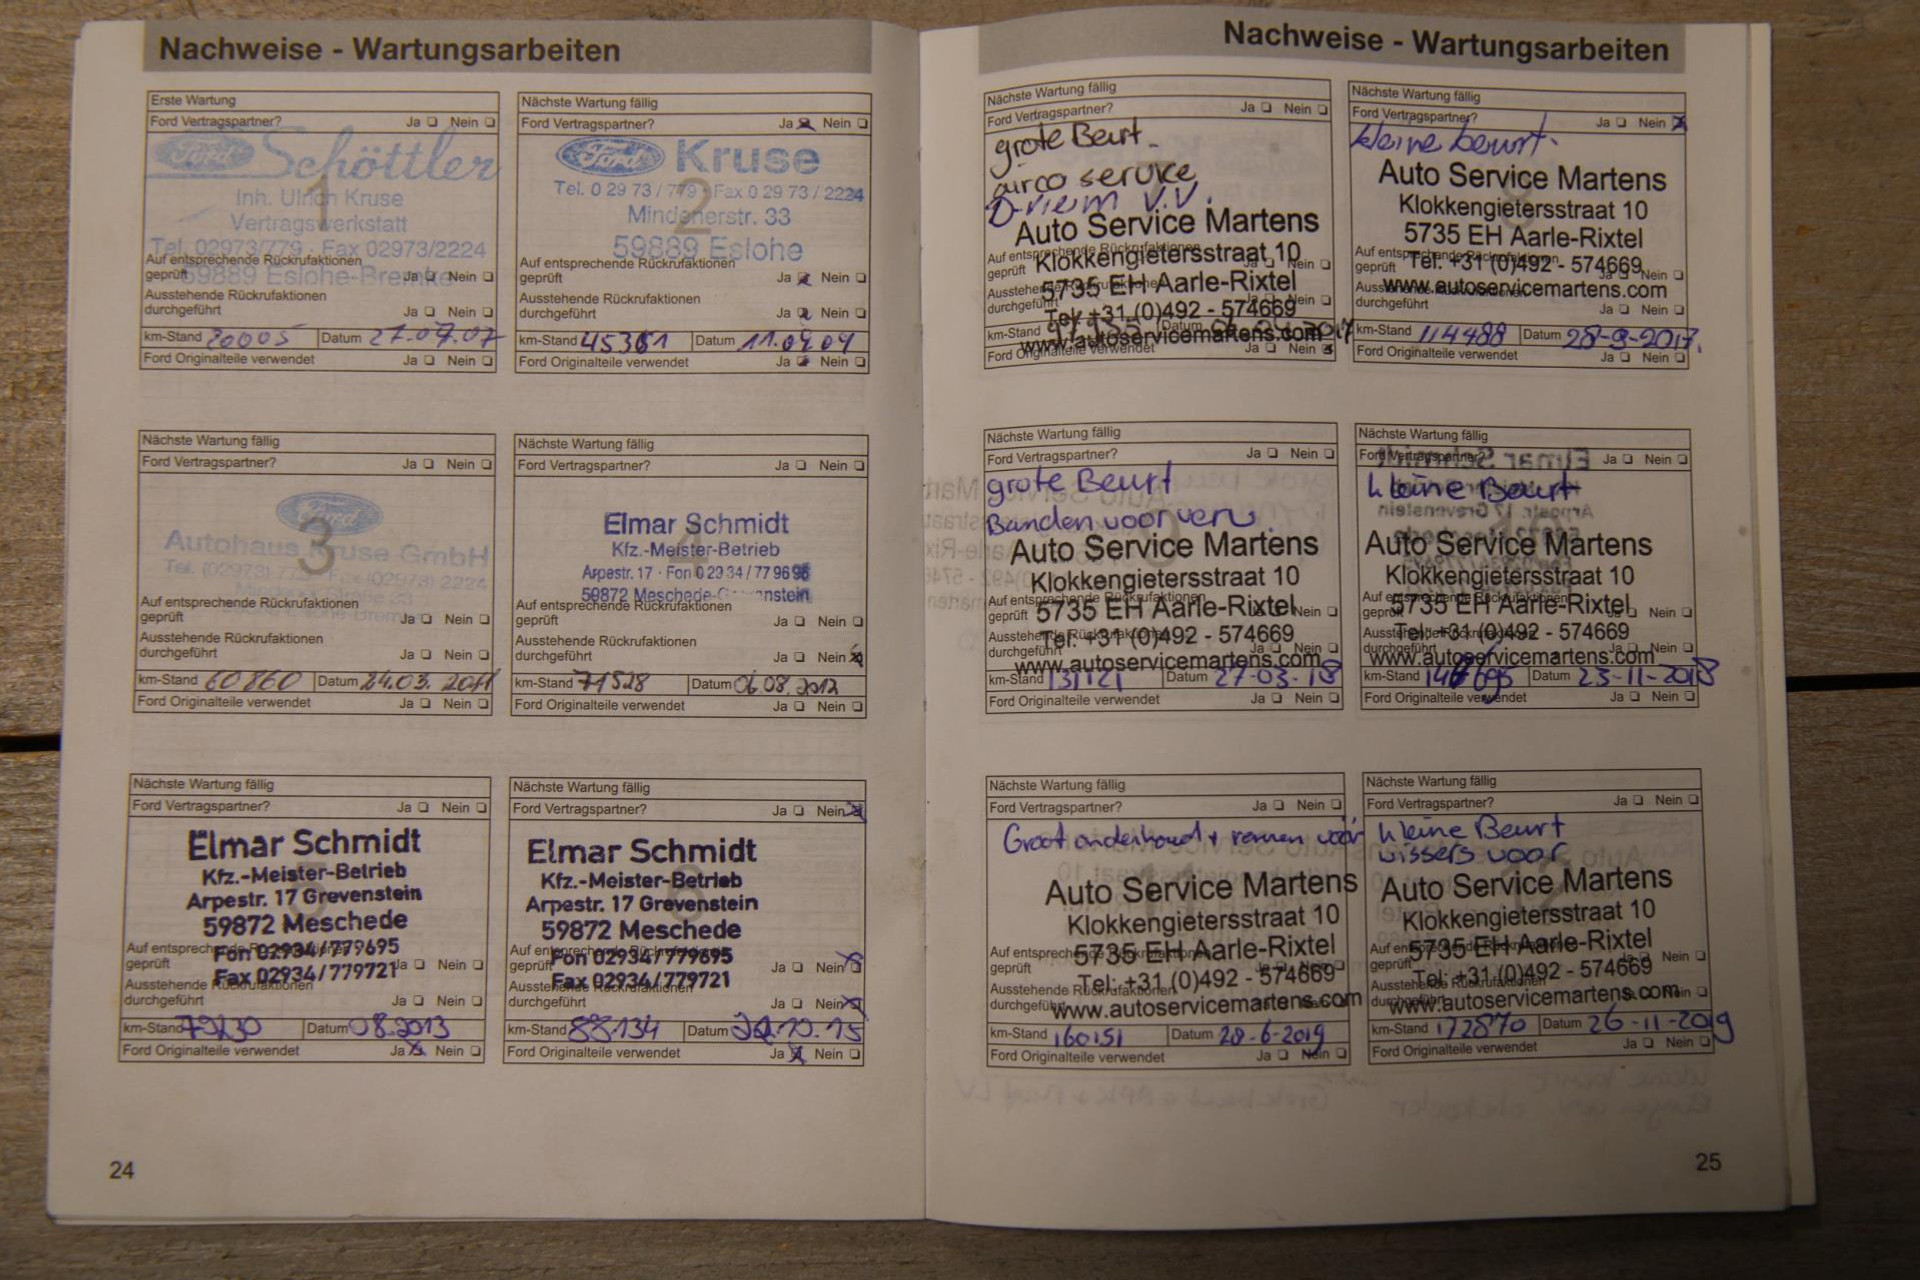 Nachweise - Wartungsarbeiten
Erste Wartung
Ford Vertragspartner? Ja Nein
Ford Schöttler
1
Inh. Ulrich Kruse
Vertragswerkstatt
Tel. 02973/779 · Fax 02973/2224
59889 Eslohe-Bremke
Auf entsprechende Rückrufaktionen
geprüft Ja Nein
Ausstehende Rückrufaktionen
durchgeführt Ja Nein
km-Stand 20005 Datum 27.07.07
Ford Originalteile verwendet Ja Nein
Nächste Wartung fällig
Ford Vertragspartner? Ja Nein
Ford Kruse
2
Tel. 0 29 73 / 779 · Fax 0 29 73 / 2224
Mindenerstr. 33
59889 Eslohe
Auf entsprechende Rückrufaktionen
geprüft Ja Nein
Ausstehende Rückrufaktionen
durchgeführt Ja Nein
km-Stand 45361 Datum 11.09.09
Ford Originalteile verwendet Ja Nein
Nächste Wartung fällig
Ford Vertragspartner? Ja Nein
Ford
3
Autohaus Kruse GmbH
Tel. (02973) 779 · Fax (02973) 2224
Auf entsprechende Rückrufaktionen
geprüft Ja Nein
Ausstehende Rückrufaktionen
durchgeführt Ja Nein
km-Stand 60860 Datum 24.03.2011
Ford Originalteile verwendet Ja Nein
Nächste Wartung fällig
Ford Vertragspartner? Ja Nein
4
Elmar Schmidt
Kfz.-Meister-Betrieb
Arpestr. 17 · Fon 0 29 34 / 77 96 95
59872 Meschede-Grevenstein
Auf entsprechende Rückrufaktionen
geprüft Ja Nein
Ausstehende Rückrufaktionen
durchgeführt Ja Nein
km-Stand 71528 Datum 06.08.2012
Ford Originalteile verwendet Ja Nein
Nächste Wartung fällig
Ford Vertragspartner? Ja Nein
5
Elmar Schmidt
Kfz.-Meister-Betrieb
Arpestr. 17 Grevenstein
59872 Meschede
Fon 02934/779695
Fax 02934/779721
Auf entsprechende Rückrufaktionen
geprüft Ja Nein
Ausstehende Rückrufaktionen
durchgeführt Ja Nein
km-Stand Datum 08.2013
Ford Originalteile verwendet Ja Nein
Nächste Wartung fällig
Ford Vertragspartner? Ja Nein
6
Elmar Schmidt
Kfz.-Meister-Betrieb
Arpestr. 17 Grevenstein
59872 Meschede
Fon 02934/779695
Fax 02934/779721
Auf entsprechende Rückrufaktionen
geprüft Ja Nein
Ausstehende Rückrufaktionen
durchgeführt Ja Nein
km-Stand 88134 Datum
Ford Originalteile verwendet Ja Nein
24
Nachweise - Wartungsarbeiten
Nächste Wartung fällig
Ford Vertragspartner? Ja Nein
grote Beurt.
airco service
D-riem V.V.
Auto Service Martens
Klokkengietersstraat 10
5735 EH Aarle-Rixtel
Tel: +31 (0)492 - 574669
www.autoservicemartens.com
Auf entsprechende Rückrufaktionen
geprüft Ja Nein
Ausstehende Rückrufaktionen
durchgeführt Ja Nein
km-Stand Datum 2017
Ford Originalteile verwendet Ja Nein
Nächste Wartung fällig
Ford Vertragspartner? Ja Nein
8
kleine beurt.
Auto Service Martens
Klokkengietersstraat 10
5735 EH Aarle-Rixtel
Tel: +31 (0)492 - 574669
www.autoservicemartens.com
Auf entsprechende Rückrufaktionen
geprüft Ja Nein
Ausstehende Rückrufaktionen
durchgeführt Ja Nein
km-Stand 114488 Datum 28-9-2017.
Ford Originalteile verwendet Ja Nein
Nächste Wartung fällig
Ford Vertragspartner? Ja Nein
9
grote Beurt
Banden voor verv.
Auto Service Martens
Klokkengietersstraat 10
5735 EH Aarle-Rixtel
Tel: +31 (0)492 - 574669
www.autoservicemartens.com
Auf entsprechende Rückrufaktionen
geprüft Nein
Ausstehende Rückrufaktionen
durchgeführt Ja Nein
km-Stand 131121 Datum 27-03-18
Ford Originalteile verwendet Ja Nein
Nächste Wartung fällig
Ford Vertragspartner? Ja Nein
kleine Beurt
Auto Service Martens
Klokkengietersstraat 10
5735 EH Aarle-Rixtel
Tel: +31 (0)492 - 574669
www.autoservicemartens.com
Auf entsprechende Rückrufaktionen
geprüft Ja Nein
Ausstehende Rückrufaktionen
durchgeführt Ja Nein
km-Stand Datum 23-11-2018
Ford Originalteile verwendet Ja Nein
Nächste Wartung fällig
Ford Vertragspartner? Ja Nein
11
Groot onderhoud + remmen voór
Auto Service Martens
Klokkengietersstraat 10
5735 EH Aarle-Rixtel
Tel: +31 (0)492 - 574669
www.autoservicemartens.com
Auf entsprechende Rückrufaktionen
geprüft Ja Nein
Ausstehende Rückrufaktionen
durchgeführt Ja Nein
km-Stand 160151 Datum 28-6-2019
Ford Originalteile verwendet Ja Nein
Nächste Wartung fällig
Ford Vertragspartner? Ja Nein
12
kleine Beurt
wissers voor
Auto Service Martens
Klokkengietersstraat 10
5735 EH Aarle-Rixtel
Tel: +31 (0)492 - 574669
www.autoservicemartens.com
Auf entsprechende Rückrufaktionen
geprüft Ja Nein
Ausstehende Rückrufaktionen
durchgeführt Ja Nein
km-Stand 172870 Datum 26-11-2019
Ford Originalteile verwendet Ja Nein
25